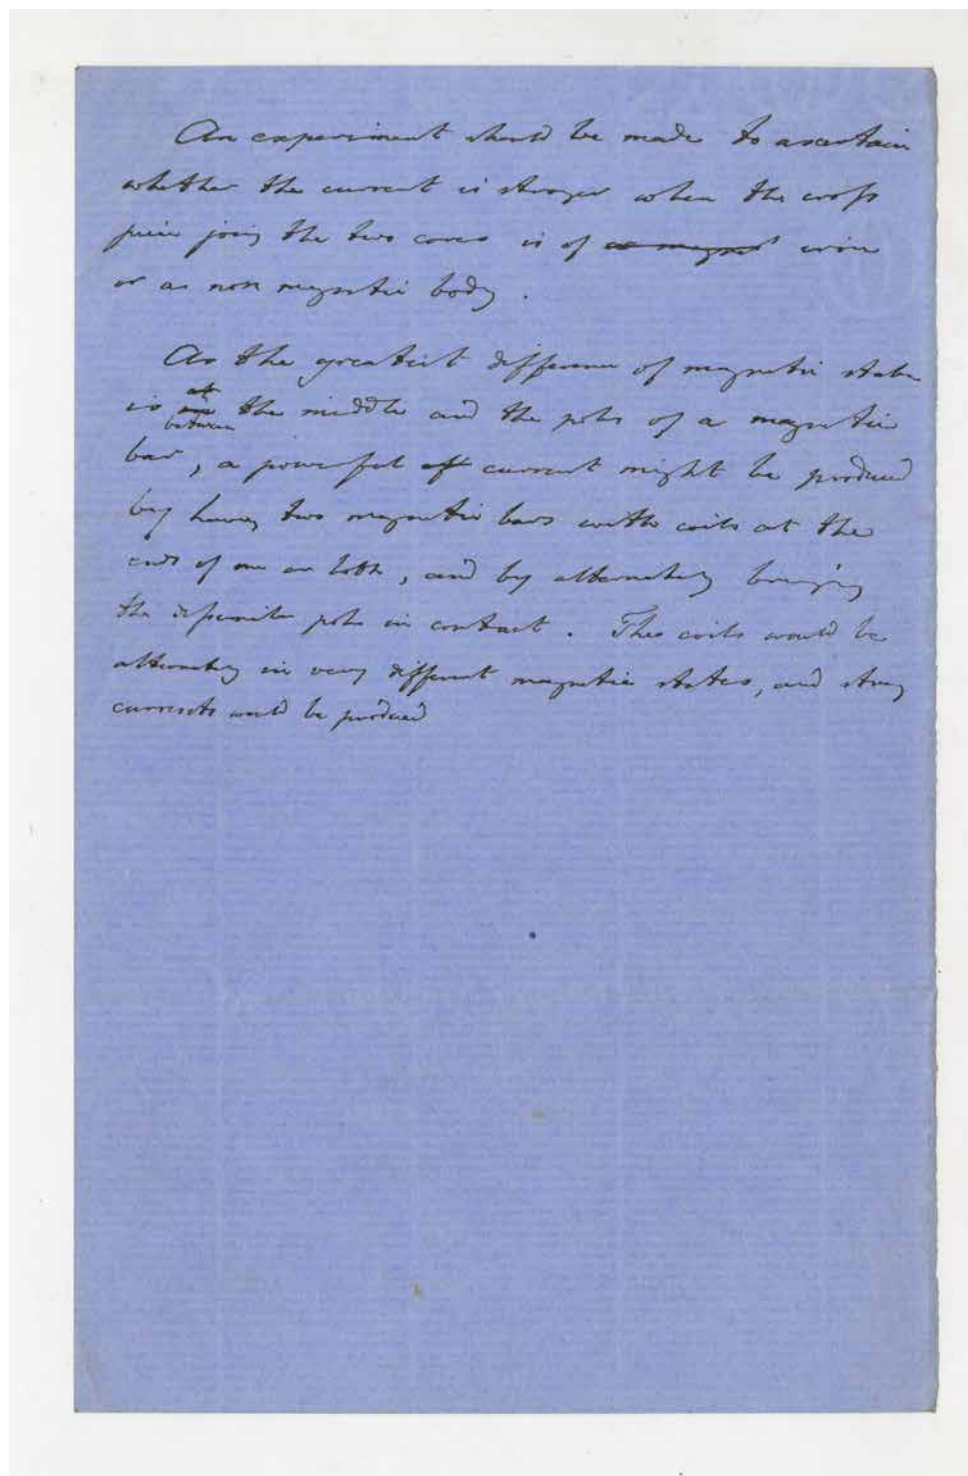 An experiment should be made to ascertain
whether the current is stronger when the cross
piece joing the two cores is of iron
or a non magnetic body.
As the greatest difference of magnetic state
is between the middle and the poles of a magnetic
bar, a powerful current might be produced
by having two magnetic bars with coils at the
ends of one or both, and by alternately bringing
the opposite poles in contact. The coils would be
alternately in very different magnetic states, and strong
currents would be produced